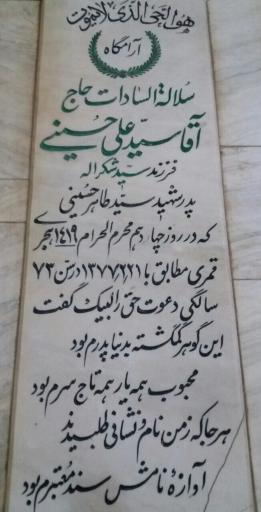 هو الحی الذی لا یموت
آرامگاه
سلالة السادات حاج
آقا سید علی حسینی
فرزند سید شکراله
پدر شهید سید طاهر حسینی
که در روز چهاردهم محرم الحرام ۱۴۱۹ هجری
قمری مطابق با ۱۳۷۷/۲/۲۱ در سن ۷۳
سالگی دعوت حق را لبیک گفت
این گوهر گمگشته بدنیا پدرم بود
محبوب همه یار همه تاج سرم بود
هر جا که ز من نام و نشانی طلبیدند
آوازهٔ نامش سند معتبرم بود